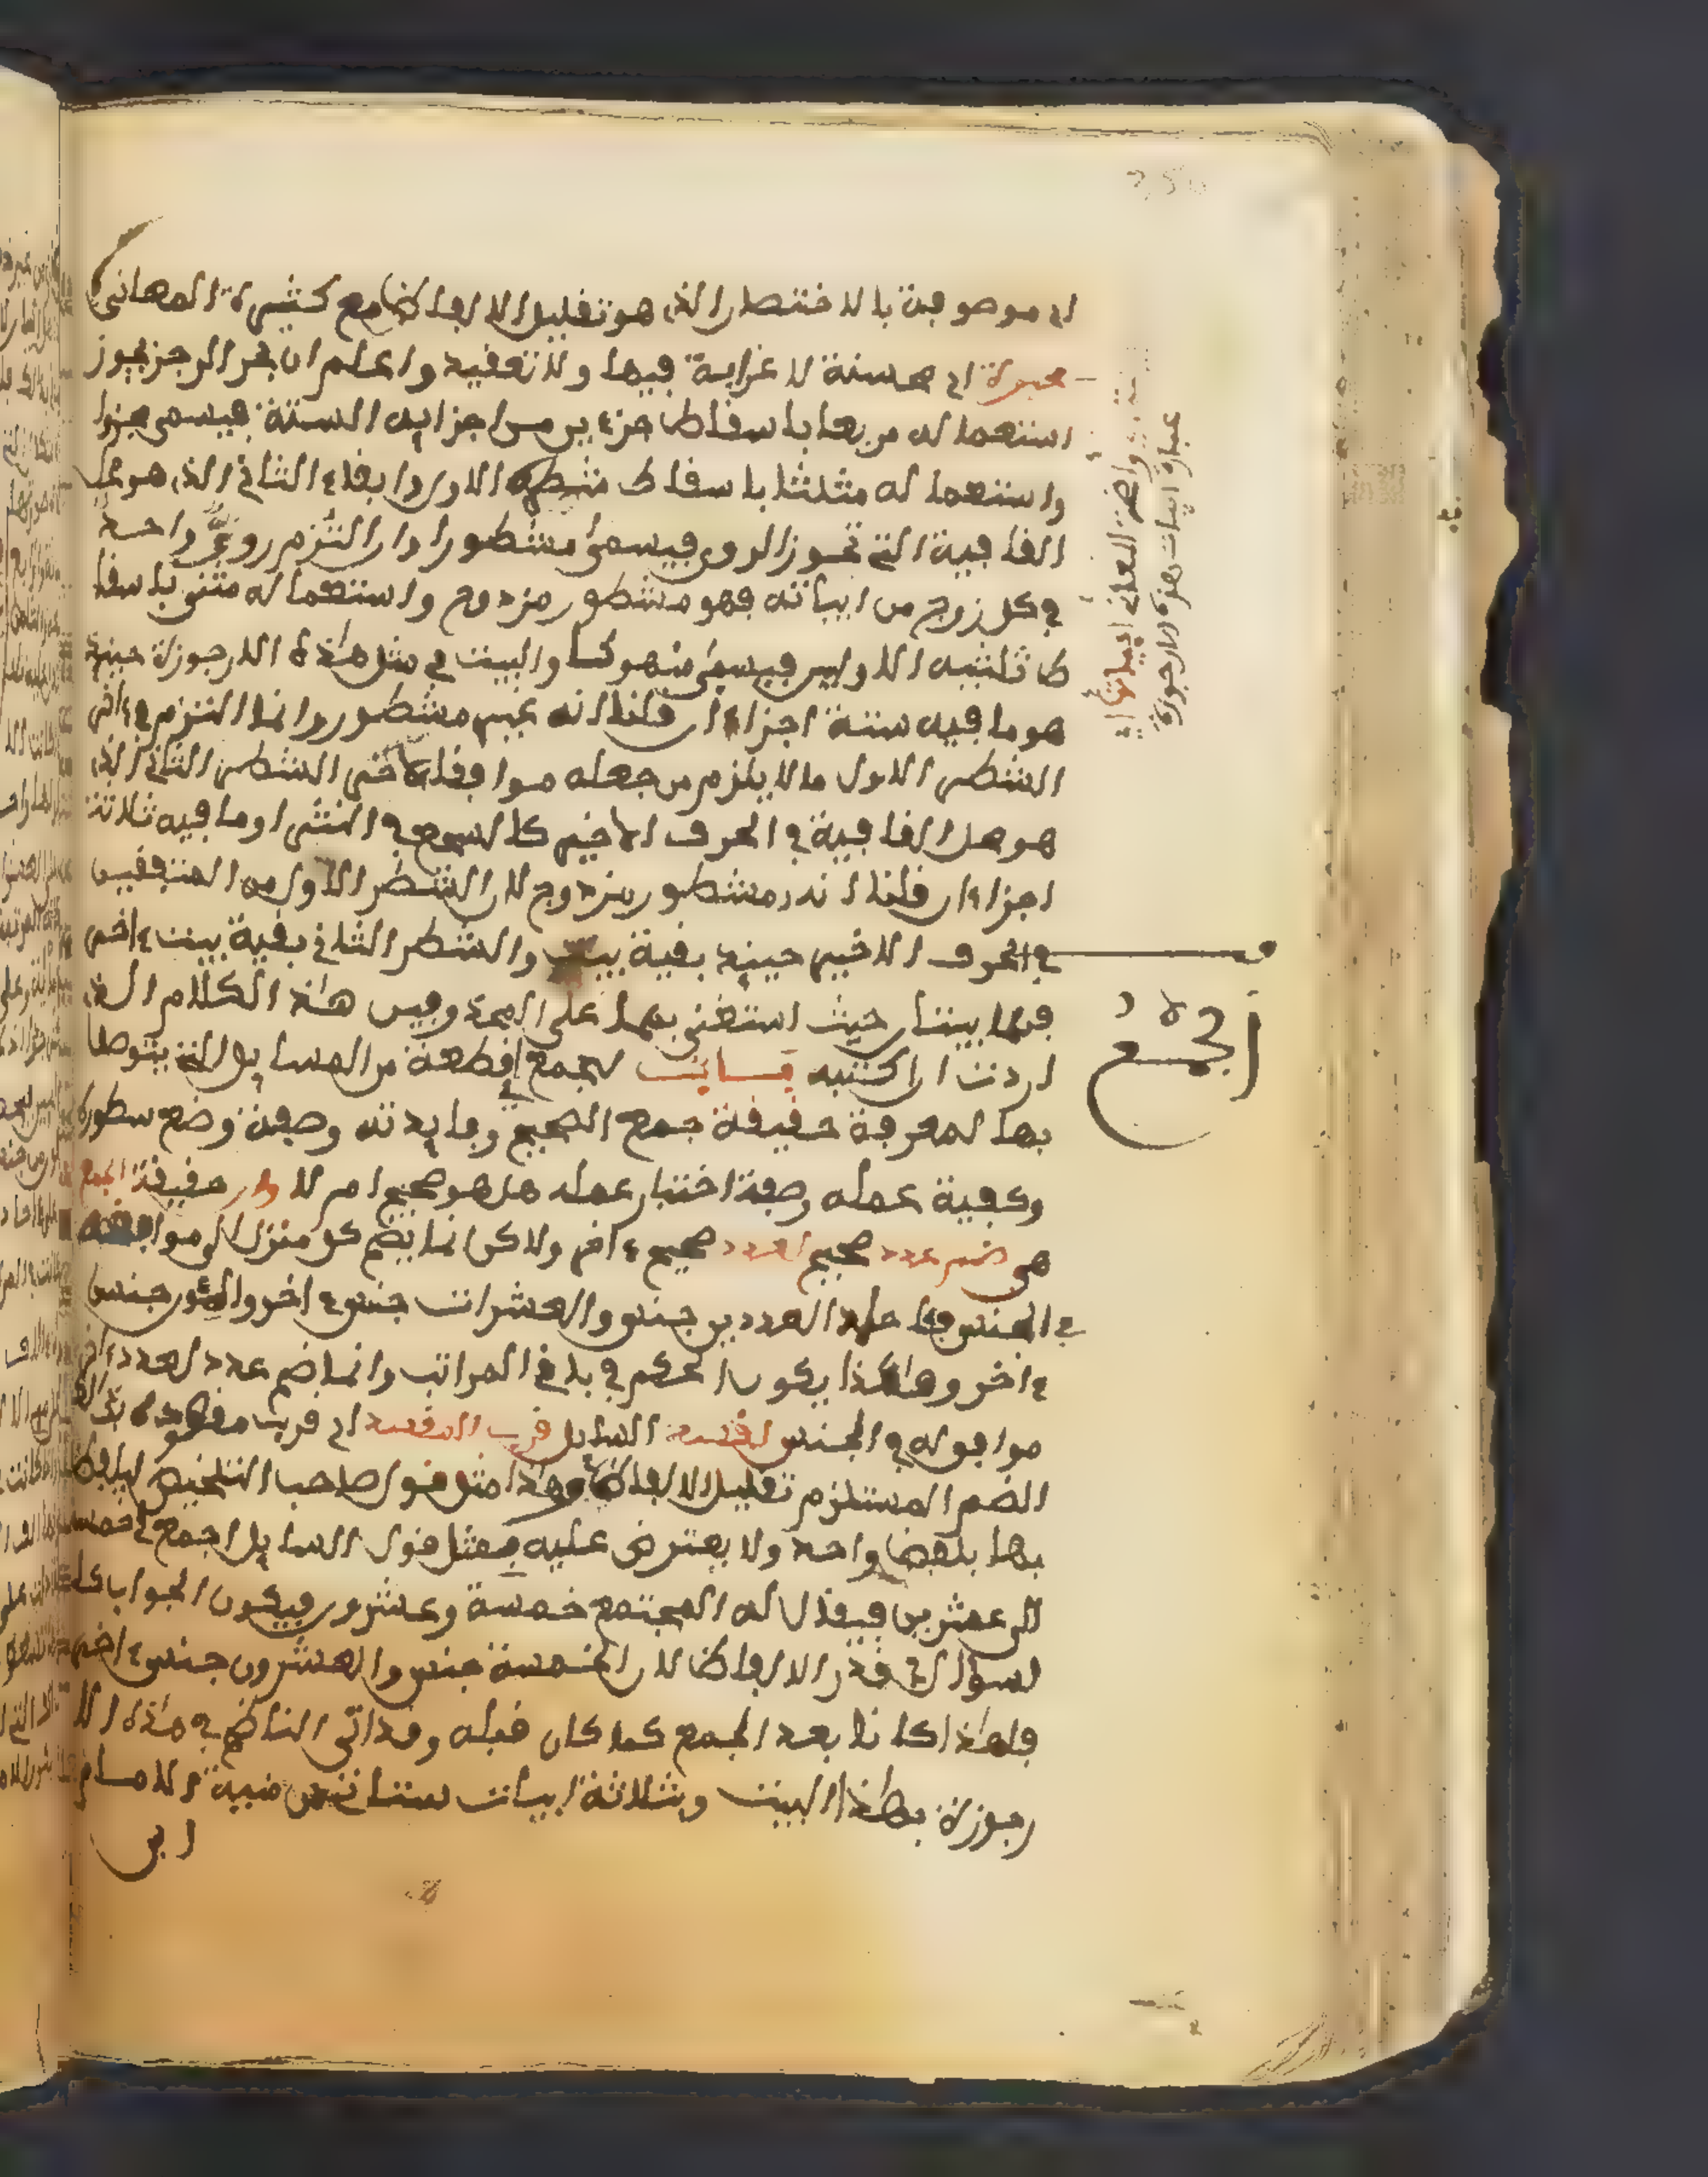 اي موصوفة بالاختصار الذي هو تقليل الالفاظ مع كثيرة المعاني
محبرة اي محسنة لا غرابة فيها ولا تعقيد واعلم ان بحر الرجز يجوز
استعماله مربعا باسقاط جزءين من اجزايه الستة فيسمى مجزوا
واستعماله مثلثا باسقاط شطره الاول وابقاء الثاني الذي هو محل
القافية التي تحوز الروي فيسمى مشطورا وان التزم روي واحد
في كل زوج من ابياته فهو مشطور مزدوج واستعماله مثنى باسقا
ط ثلثيه الاولين فيسمى منهوكا والبيت في مثل هذه الارجوزة حينيذ
هو ما فيه ستة اجزاء ان قلنا انه غير مشطور وانما التزم في ءاخر
الشطر الاول ما لا يلزم من جعله موافقا لاخر الشطر الثاني الذي
هو محل القافية في الحرف الاخير كالسجع في النثر او ما فيه ثلاثة
اجزاء ان قلنا انه مشطور مزدوج لان الشطر الاول من المتفقين
في الحرف الاخير حينيذ بقية بيت والشطر الثاني بقية بيت ءاخر
فهما بيتان حيث استغنى بهما على وفيس هذا الكلام الذي
اردت ان اكتبه الجمع اي قطعة من المسايل التي يتوصل
بها لمعرفة حقيقة جمع الصحيح وفايدته وصفة وضع سطوره
وكفية عمله وصفة اختبار عمله هل هو صحيح ام لا حقيقة الجمع
هي ضم عدد صحيح لعدد صحيح ءاخر ولاكن انما يضم كل منزل الى موافقه
في الجنس فالعدد جنس والعشرات جنس ءاخر والمئون جنس
ءاخر وهكذا يكون الحكم في باقي المراتب وانما ضم عدد لعدد ءاخر
موافق له في الجنس السايل اي قريب مقصوده
الضم المستلزم تقليل الالفاظ وهذا مثل قول صاحب التلخيص ليلفظ
بها بلفظ واحد ولا يعترض عليه بمثل قول السايل اجمع لي خمسة
الى عشرين فيقال له المجتمع خمسة وعشرون فيكون الجواب كا
لسؤال في قدر الالفاظ لان الخمسة جنس والعشرون جنس ءاخر
فلهذا كانا بعد الجمع كما كان قبله وقد اتى الناظم في هذه الا
رجوزة بهذا البيت وبثلاثة ابيات ستاتي من منية الامام
ابن
الجمع
واضحة المعاني ابياتها اي
عبارة ابيات هذه الارجوزة